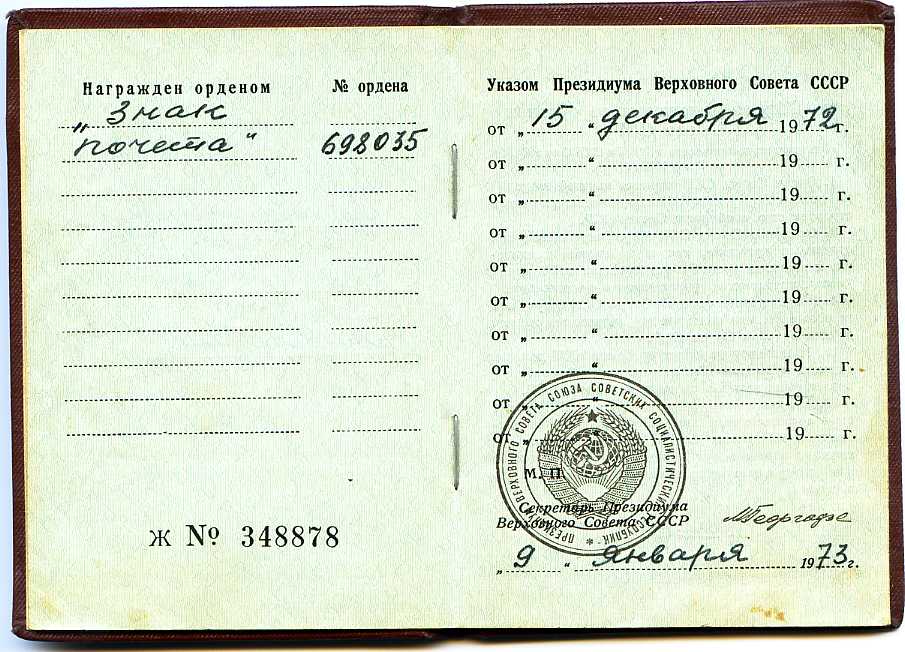 Награжден орденом
„Знак
почета“
№ ордена
698035
Ж № 348878
Указом Президиума Верховного Совета СССР
от „ 15 “ декабря 1972 г.
от „ “ 19 г.
от „ “ 19 г.
от „ “ 19 г.
от „ “ 19 г.
от „ “ 19 г.
от „ “ 19 г.
от „ “ 19 г.
от „ “ 19 г.
от „ “ 19 г.
М. П.
ПРЕЗИДИУМ ВЕРХОВНОГО СОВЕТА СОЮЗА СОВЕТСКИХ СОЦИАЛИСТИЧЕСКИХ РЕСПУБЛИК
Секретарь Президиума
Верховного Совета СССР
МГеоргадзе
„ 9 “ января 1973 г.